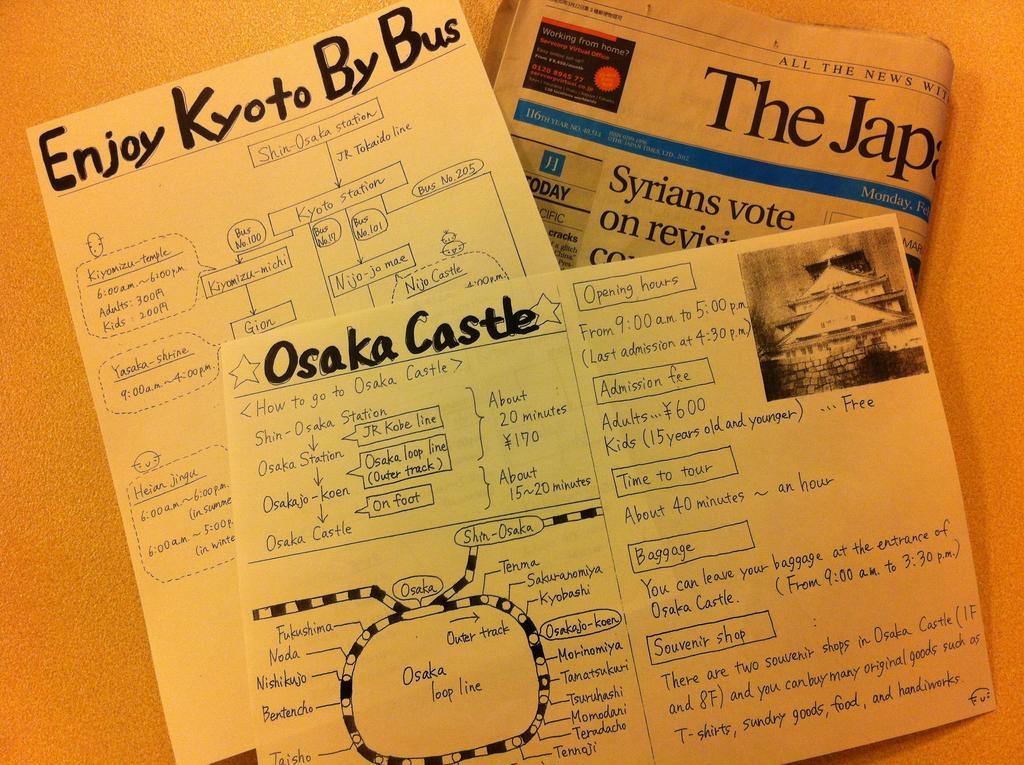 Enjoy Kyoto By Bus
Shin-Osaka station
JR Tokaido line
Kyoto station
Bus No.205
Bus No.100
Bus No.17
Bus No.101
Kiyomizu-temple
6:00a.m.~6:00p.m.
Adults: 300円
Kids: 200円
Kiyomizu-michi
Nijo-jo mae
Nijo Castle
4:00p.m.
Gion
Yasaka-shrine
9:00a.m.~4:00p.m.
Heian jingu
6:00a.m.~6:00p.m.
(in summe
6:00a.m.~5:00p.
(in winte
Working from home?
Servcorp Virtual Office
0120 8945 77
servcorpvirtual.co.jp
ALL THE NEWS WIT
The Japa
116TH YEAR NO. 40,514
©THE JAPAN TIMES LTD., 2012
Monday, Fe
月
TODAY
CIFIC
cracks
Syrians vote
on revisi
co
MAR
Osaka Castle
<How to go to Osaka Castle>
Shin-Osaka Station
JR Kobe line
Osaka Station
Osaka loop line
(Outer track)
Osakajo-koen
On foot
Osaka Castle
About
20 minutes
¥170
About
15~20minutes
Shin-Osaka
Osaka
Tenma
Sakuranomiya
Kyobashi
Osakajo-koen
Morinomiya
Tamatsukuri
Tsuruhashi
Momodani
Teradacho
Tennoji
Fukushima
Noda
Nishikujo
Bentencho
Taisho
Outer track
Osaka
loop line
Opening hours
From 9:00 a.m. to 5:00 p.m.
(Last admission at 4:30 p.m.)
Admission fee
Adults…¥600
Kids (15years old and younger) … Free
Time to tour
About 40 minutes ~ an hour
Baggage
You can leave your baggage at the entrance of
Osaka Castle. (From 9:00 a.m. to 3:30 p.m.)
Souvenir shop
There are two souvenir shops in Osaka Castle (1F
and 8F) and you can buy many original goods such as
T-shirts, sundry goods, food, and handiworks.